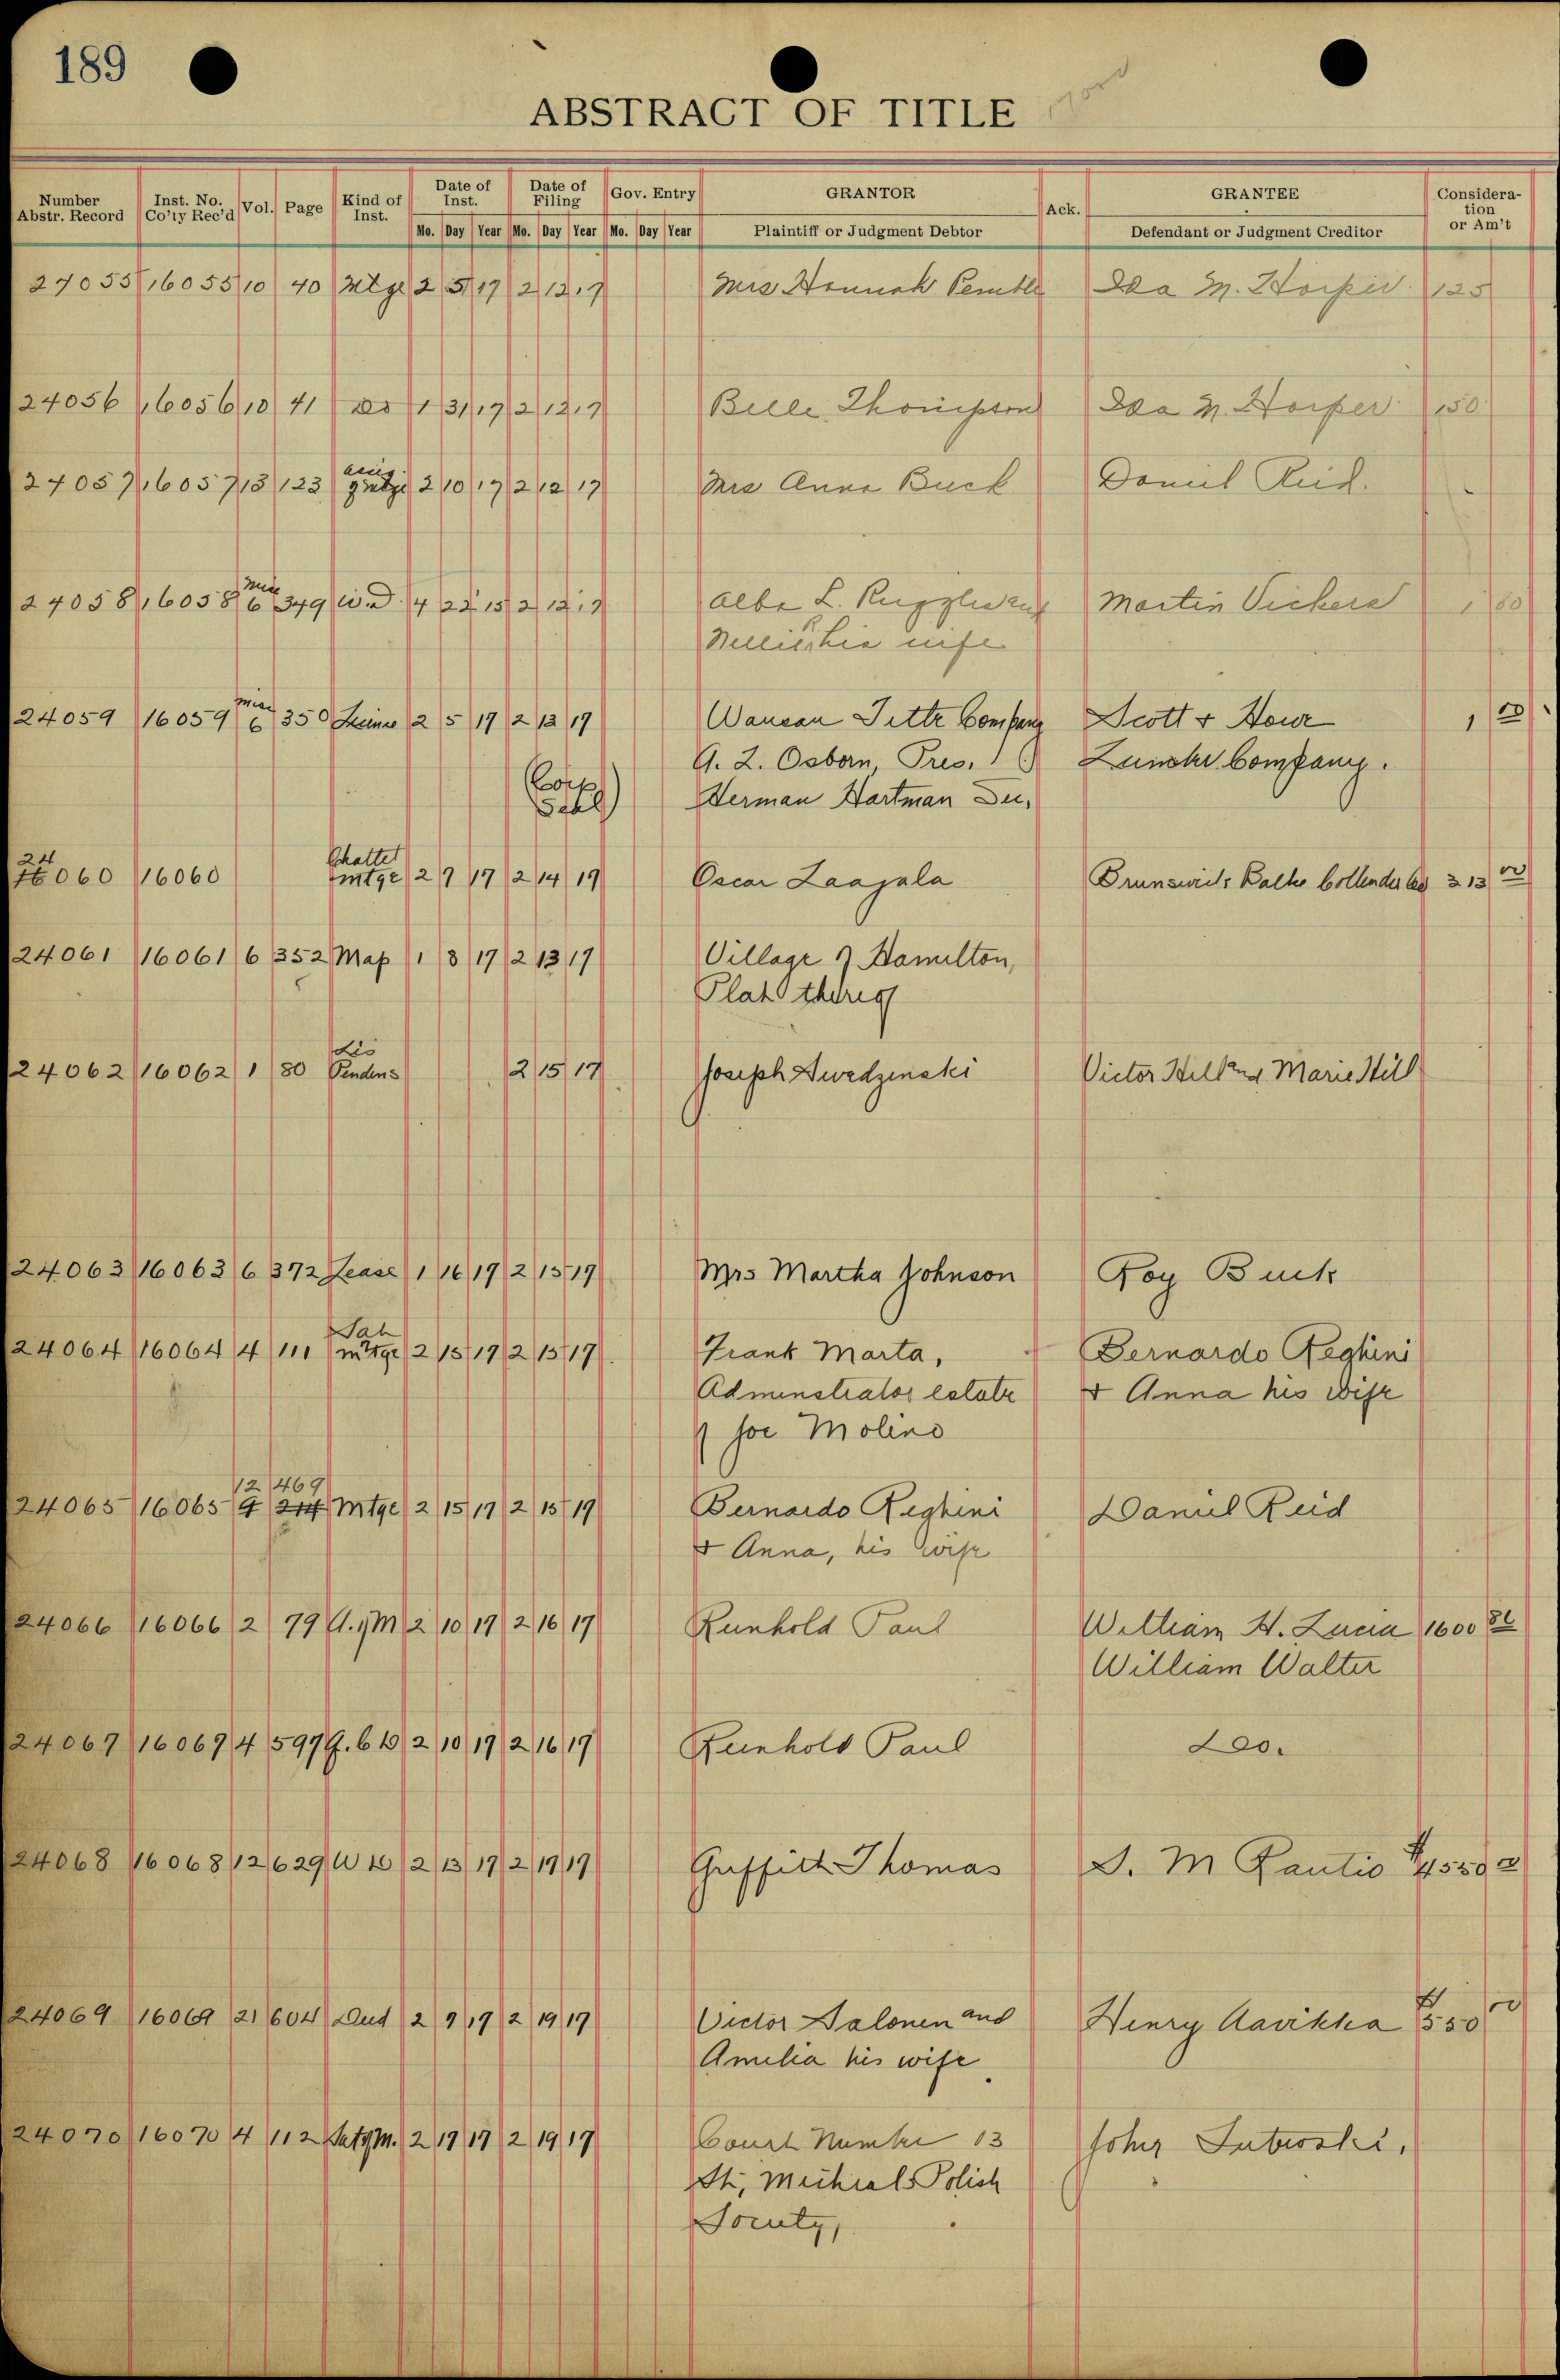 189
ABSTRACT OF TITLE
Number Abstr. Record Inst. No. Co'ty Rec'd Vol. Page Kind of Inst. Date of Inst. Date of Filing Gov. Entry GRANTOR Ack. GRANTEE Considera-tion or Am't
Mo. Day Year Mo. Day Year Mo. Day Year Plaintiff or Judgment Debtor Defendant or Judgment Creditor
24055 16055 10 40 Mtge 2 5 17 2 12 17 Mrs Hannah Ida M. Harper 125
24056 16056 10 41 do 1 31 17 2 12 17 Belle Thompson Ida M. Harper 150
24057 16057 13 123 2 10 17 2 12 17 Mrs Anna Buck Daniel Reid.
24058 16058 Misc 6 349 W.D. 4 22 15 2 12 17 Alba L. Ruggles and Martin Vickers 1 00
Nellie, his wife
24059 16059 Misc 6 350 2 5 17 2 13 17 Wausau Title Company Scott & Howe 1 00
G. L. Osborn, Pres. Lumber Company.
(Corp Seal) Herman Hartman Sec,
24060 16060 Chattel mtge 2 7 17 2 14 17 Oscar Laajala Brunswick Balke Collender Co 313 00
24061 16061 6 352 Map 1 8 17 2 13 17 Village of Hamilton,
Plat thereof
24062 16062 1 80 Lis Pendens 2 15 17 Joseph Swedzenski Victor Hill and Marie Hill
24063 16063 6 372 Lease 1 16 17 2 15 17 Mrs Martha Johnson Roy Buck
24064 16064 4 111 Sat mtge 2 15 17 2 15 17 Frank Marta, Bernardo Reghini
Adminstrator estate & Anna his wife
of Joe Molino
12 469
24065 16065 Mtge 2 15 17 2 15 17 Bernardo Reghini Daniel Reid
& Anna, his wife
24066 16066 2 79 A. of M 2 10 17 2 16 17 Reinhold Paul William H. Lucia 1600 86
William Walter
24067 16067 4 597 Q. C D 2 10 17 2 16 17 Reinhold Paul Do.
24068 16068 12 629 W D 2 13 17 2 19 17 Griffith Thomas S. M Rautio
24069 16069 21 604 Deed 2 9 17 2 19 17 Victor Salonen and Henry Aavikka $550 00
Amelia his wife
24070 16070 4 112 Sat of M. 2 19 17 2 19 17 Court Number 13 John
St, Micheals Polish
Society,